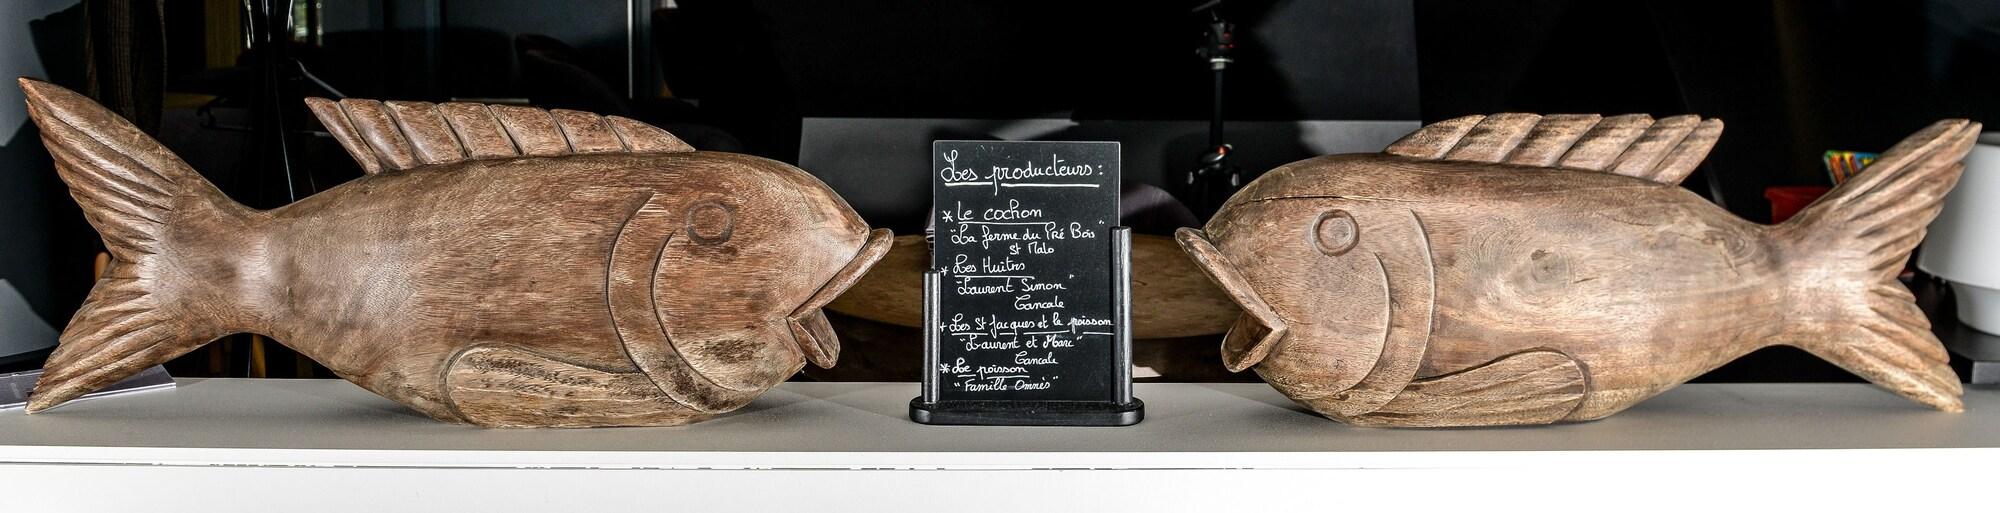 Les producteurs :
* Le cochon
"La ferme du Pré Bois"
St Malo
* Les Huitres
"Laurent Simon"
Cancale
* Les St Jacques et le poisson
"Laurent et Marc"
Cancale
* Le poisson
"Famille Omnès"